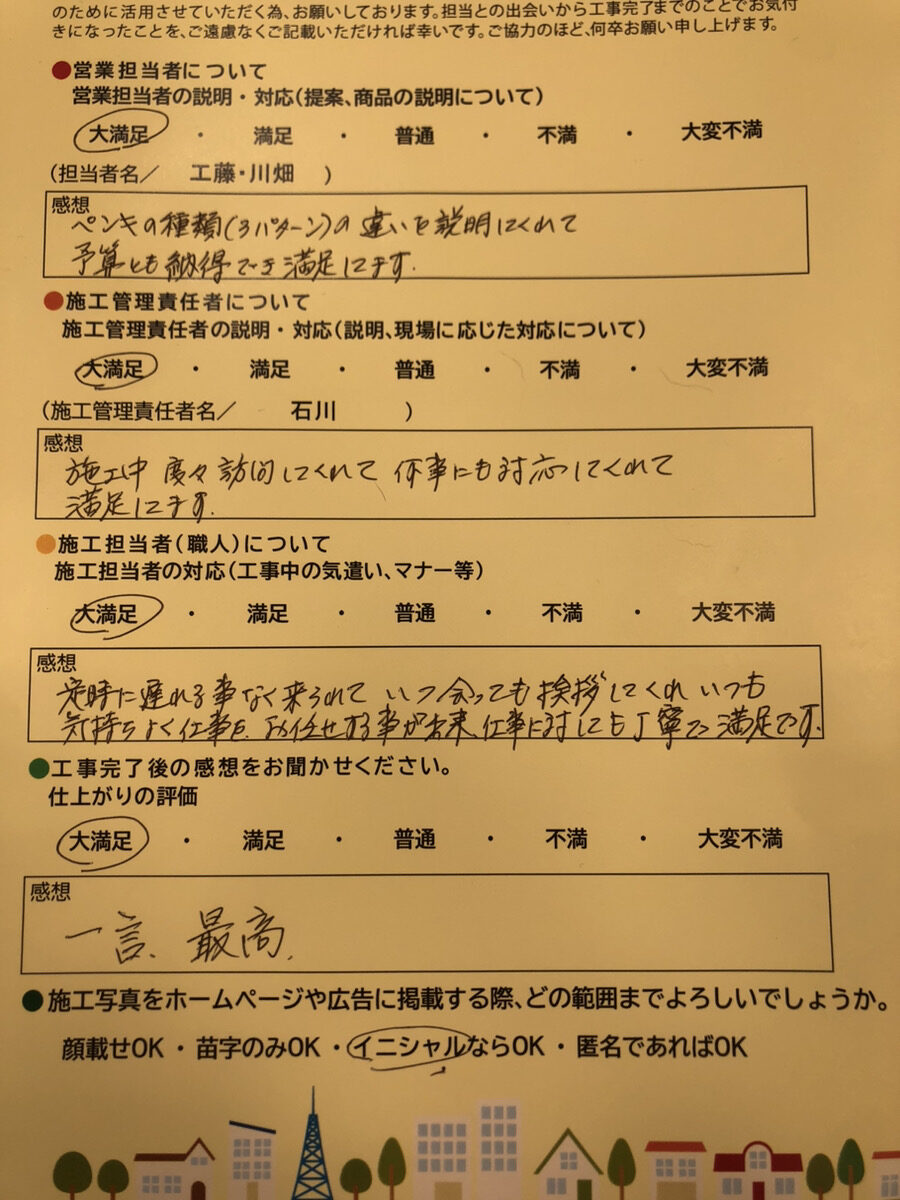 のために活用させていただく為、お願いしております。担当との出会いから工事完了までのことでお気付
きになったことを、ご遠慮なくご記載いただければ幸いです。ご協力のほど、何卒お願い申し上げます。
●営業担当者について
営業担当者の説明・対応(提案、商品の説明について)
大満足 ・ 満足 ・ 普通 ・ 不満 ・ 大変不満
(担当者名／ 工藤・川畑 )
感想
ペンキの種類(3パターン)の違いを説明してくれて
予算とも納得でき満足してます.
●施工管理責任者について
施工管理責任者の説明・対応(説明、現場に応じた対応について)
大満足 ・ 満足 ・ 普通 ・ 不満 ・ 大変不満
(施工管理責任者名／ 石川 )
感想
施工中 度々訪問してくれて 何事にも対応してくれて
満足してます.
●施工担当者(職人)について
施工担当者の対応(工事中の気遣い、マナー等)
大満足 ・ 満足 ・ 普通 ・ 不満 ・ 大変不満
感想
定時に遅れる事なく来られて いつ会っても挨拶してくれ いつも
気持ちよく仕事を お任せする事が出来、仕事に対しても丁寧で満足です.
●工事完了後の感想をお聞かせください。
仕上がりの評価
大満足 ・ 満足 ・ 普通 ・ 不満 ・ 大変不満
感想
一言、最高.
●施工写真をホームページや広告に掲載する際、どの範囲までよろしいでしょうか。
顔載せOK ・ 苗字のみOK ・ イニシャルならOK ・ 匿名であればOK